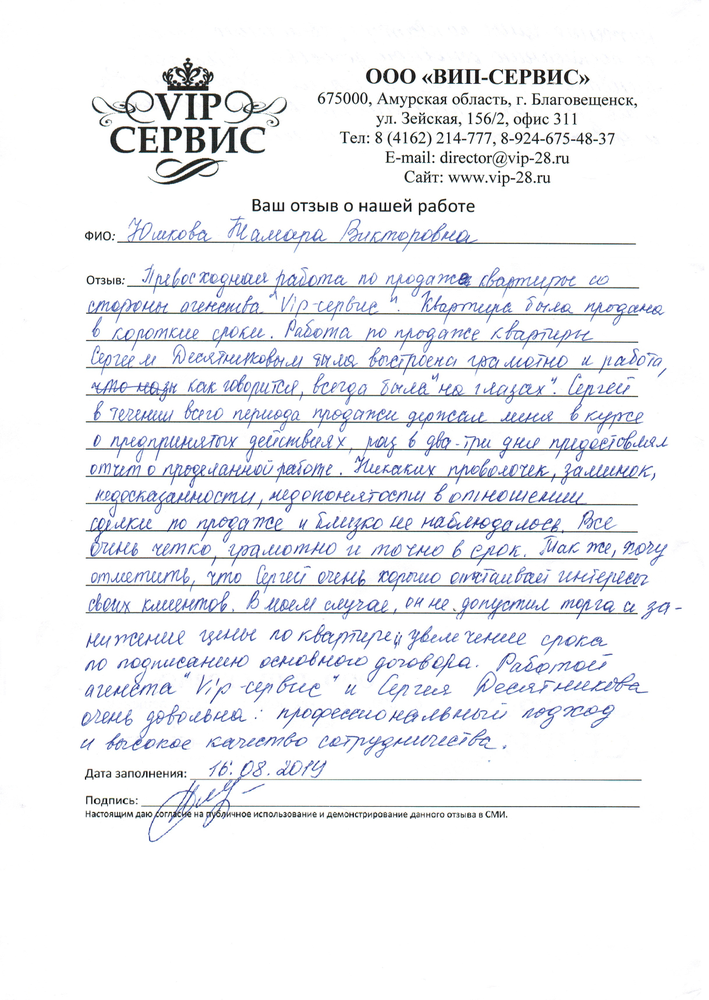 VIP
СЕРВИС
ООО «ВИП-СЕРВИС»
675000, Амурская область, г. Благовещенск,
ул. Зейская, 156/2, офис 311
Тел: 8 (4162) 214-777, 8-924-675-48-37
E-mail: director@vip-28.ru
Сайт: www.vip-28.ru
Ваш отзыв о нашей работе
ФИО: Юшкова Тамара Викторовна
Отзыв: Превосходная работа по продаже квартиры со
стороны агенства "Vip-сервис". Квартира была продана
в короткие сроки. Работа по продаже квартиры
Сергеем Десятниковым была выстроена грамотно и работа,
как говорится, всегда была "на глазах". Сергей
в течении всего периода продажи держал меня в курсе
о предпринятых действиях, раз в два-три дня предоставлял
отчет о проделанной работе. Никаких проволочек, заминок,
недосказанности, недопонятости в отношении
сделки по продаже и близко не наблюдалось. Все
очень четко, грамотно и точно в срок. Так же, хочу
отметить, что Сергей очень хорошо отстаивает интересы
своих клиентов. В моем случае, он не допустил торга и за-
нижение цены по квартире и увеличение срока
по подписанию основного договора. Работой
агенста "Vip-сервис" и Сергея Десятникова
очень довольна: профессиональный подход
и высокое качество сотрудничества.
Дата заполнения: 16.08.2019
Подпись:
Настоящим даю согласие на публичное использование и демонстрирование данного отзыва в СМИ.